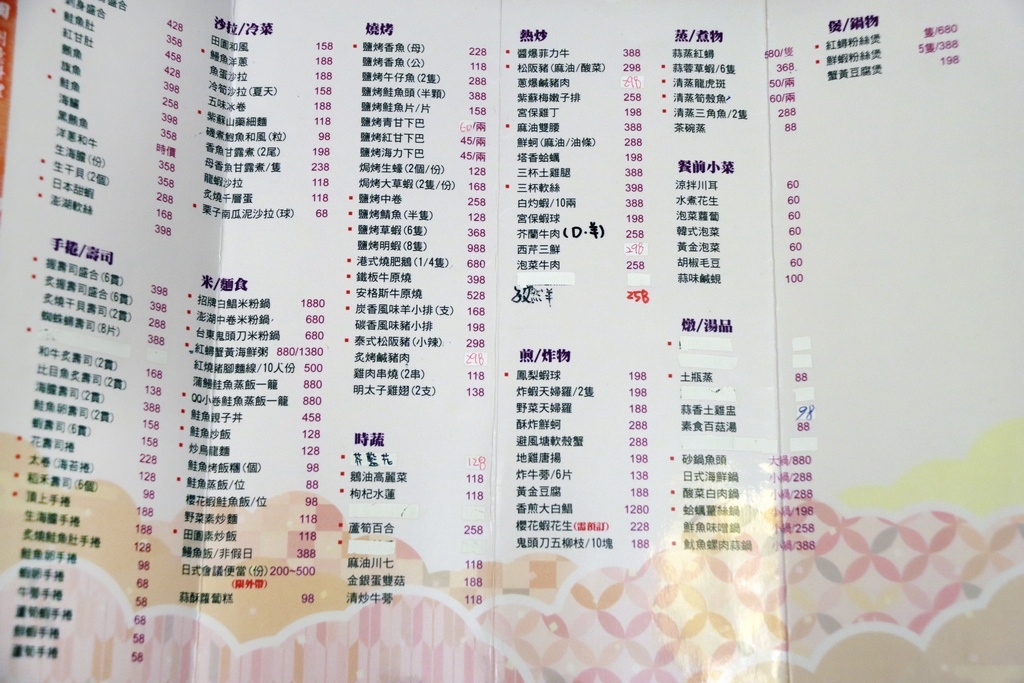 刺身盛合
鮭魚肚 428
紅甘肚 358
鮪魚 458
旗魚 428
鮭魚 358
海鱺 258
黑鮪魚 398
洋蔥和牛 358
生海膽(份) 時價
生干貝(2個) 358
日本甜蝦 358
澎湖軟絲 288
168
398
手捲/壽司
握壽司盛合(6貫) 398
炙握壽司盛合(6貫) 398
炙燒干貝壽司(2貫) 288
蜘蛛蟳壽司(8片) 388
和牛炙壽司(2貫) 168
比目魚炙壽司(2貫) 138
海膽壽司(2貫) 388
鮭魚卵壽司(2貫) 158
蝦壽司(6貫) 158
花壽司捲 228
太卷(海苔捲) 128
稻禾壽司(6個) 98
頂上手捲 188
生海膽手捲 188
炙燒鮭魚肚手捲 128
鮭魚卵手捲 98
蝦卵手捲 68
牛蒡手捲 58
蘆筍蝦手捲 68
鮮蝦手捲 58
蘆筍手捲 58
沙拉/冷菜
田園和風 158
鰻魚洋蔥 188
魚蛋沙拉 188
冷筍沙拉(夏天) 158
五味冰卷 188
紫蘇山藥細麵 118
磯煮鮑魚和風(粒) 98
香魚甘露煮(2尾) 198
母香魚甘露煮/隻 238
龍蝦沙拉 118
炙燒千層蛋 118
栗子南瓜泥沙拉(球) 68
米/麵食
招牌白鯧米粉鍋 1880
澎湖中卷米粉鍋 680
台東鬼頭刀米粉鍋 680
紅蟳蟹黃海鮮粥 880/1380
紅燒豬腳麵線/10人份 500
蒲鰻鮭魚蒸飯一籠 880
QQ小卷鮭魚蒸飯一籠 880
鮭魚親子丼 458
鮭魚炒飯 128
炒烏龍麵 128
鮭魚烤飯糰(個) 98
鮭魚蒸飯/位 88
櫻花蝦鮭魚飯/位 98
野菜素炒麵 118
田園素炒飯 118
鰻魚飯/非假日 388
日式會議便當(份) 200~500
(限外帶)
蒜酥蘿蔔糕 98
燒烤
鹽烤香魚(母) 228
鹽烤香魚(公) 118
鹽烤午仔魚(2隻) 288
鹽烤鮭魚頭(半顆) 388
鹽烤鮭魚片/片 158
鹽烤青甘下巴 60/兩
鹽烤紅甘下巴 45/兩
鹽烤海力下巴 45/兩
焗烤生蠔(2個/份) 128
焗烤大草蝦(2隻/份) 168
鹽烤中卷 258
鹽烤鯖魚(半隻) 128
鹽烤草蝦(6隻) 368
鹽烤明蝦(8隻) 988
港式燒肥鵝(1/4隻) 680
鐵板牛原燒 398
安格斯牛原燒 528
炭香風味羊小排(支) 168
碳香風味豬小排 198
泰式松阪豬(小辣) 298
炙烤鹹豬肉 298
雞肉串燒(2串) 118
明太子雞翅(2支) 138
時蔬
芥藍花 128
鵝油高麗菜 118
枸杞水蓮 118
蘆筍百合 258
麻油川七 118
金銀蛋雙菇 188
清炒牛蒡 118
熱炒
醬爆菲力牛 388
松阪豬(麻油/酸菜) 298
蔥爆鹹豬肉 298
紫蘇梅嫩子排 258
宮保雞丁 198
麻油雙腰 388
鮮蚵(麻油/油條) 288
塔香蛤蠣 198
三杯土雞腿 388
三杯軟絲 398
白灼蝦/10兩 388
宮保蝦球 198
芥蘭牛肉(D.羊) 258
西芹三鮮 298
泡菜牛肉 258
羊 258
煎/炸物
鳳梨蝦球 198
炸蝦天婦羅/2隻 198
野菜天婦羅 188
酥炸鮮蚵 288
避風塘軟殼蟹 288
地雞唐揚 198
炸牛蒡/6片 138
黃金豆腐 188
香煎大白鯧 1280
櫻花蝦花生(需預訂) 228
鬼頭刀五柳枝/10塊 188
蒸/煮物
蒜蒸紅蟳 680/隻
蒜蓉草蝦/6隻 368
清蒸龍虎斑 50/兩
清蒸筍殼魚 60/兩
清蒸三角魚/2隻 288
茶碗蒸 88
餐前小菜
涼拌川耳 60
水煮花生 60
泡菜蘿蔔 60
韓式泡菜 60
黃金泡菜 60
胡椒毛豆 60
蒜味鹹蜆 100
燉/湯品
土瓶蒸 88
蒜香土雞盅 98
素食百菇湯 88
砂鍋魚頭 大鍋/880
日式海鮮鍋 小鍋/288
酸菜白肉鍋 小鍋/288
蛤蠣薑絲鍋 小鍋/198
鮮魚味噌鍋 小鍋/258
魷魚螺肉蒜鍋 小鍋/388
煲/鍋物
紅蟳粉絲煲 隻/680
鮮蝦粉絲煲 5隻/388
蟹黃豆腐煲 198